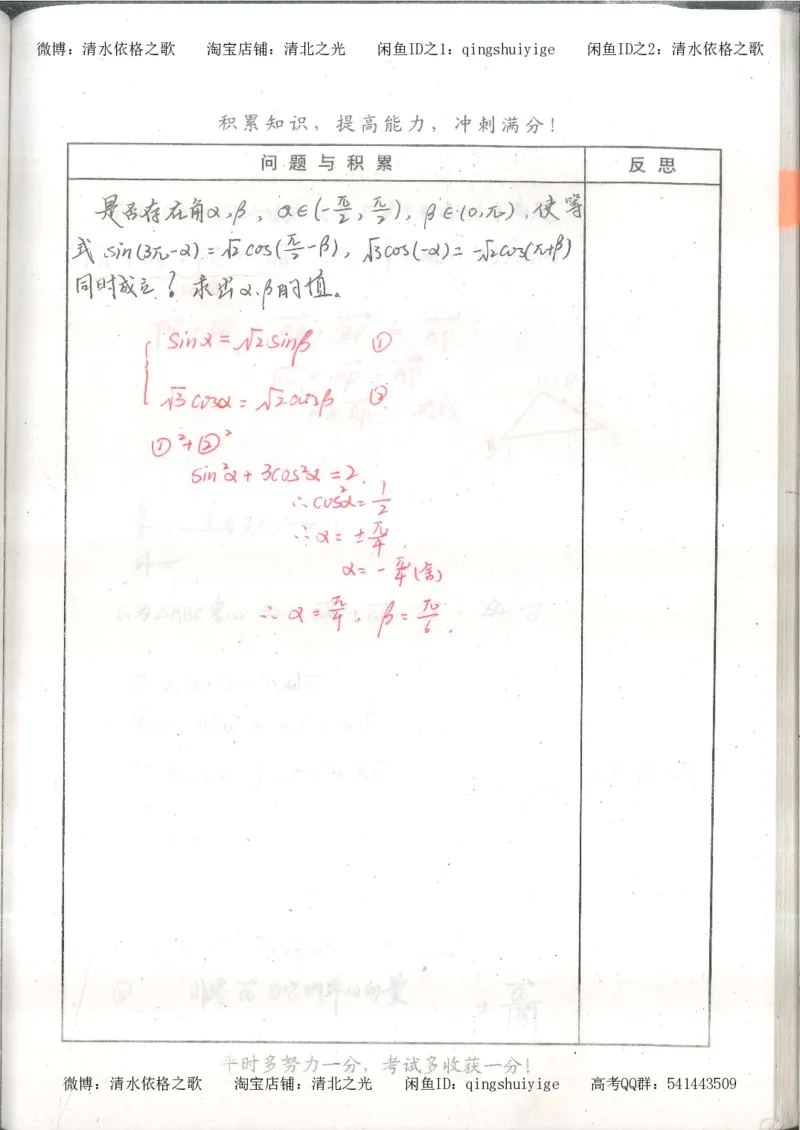 微博：清水依格之歌 淘宝店铺：清北之光 闲鱼ID之1：qingshuiyige 闲鱼ID之2：清水依格之歌
积累知识，提高能力，冲刺满分！
问题与积累 反思
是否存在角α,β，α∈(-π/2, π/2)，β∈(0,π)，使等
式 sin(3π-α)=√2cos(π/2-β)，√3cos(-α)=-√2cos(π+β)
同时成立？求出α.β的值。
sinα=√2sinβ ①
√3cosα=√2cosβ ②
①²+②²
sin²α+3cos²α=2.
∴cos²α=1/2
∴α=±π/4.
α=-π/4(舍)
∴α=π/4，β=π/6.
平时多努力一分，考试多收获一分！
微博：清水依格之歌 淘宝店铺：清北之光 闲鱼ID：qingshuiyige 高考QQ群：541443509